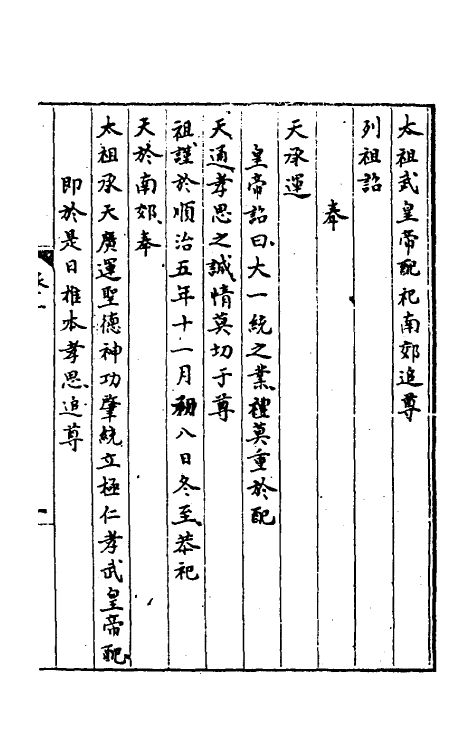 太祖武皇帝配祀南郊追尊
列祖詔
奉
天承運
皇帝詔曰大一統之業禮莫重於配
天通孝思之誠情莫切于尊
祖謹於順治五年十一月初八日冬至恭祀
天於南郊奉
太祖承天廣運聖德神功肇統立極仁孝武皇帝配
即於是日推本孝思追尊